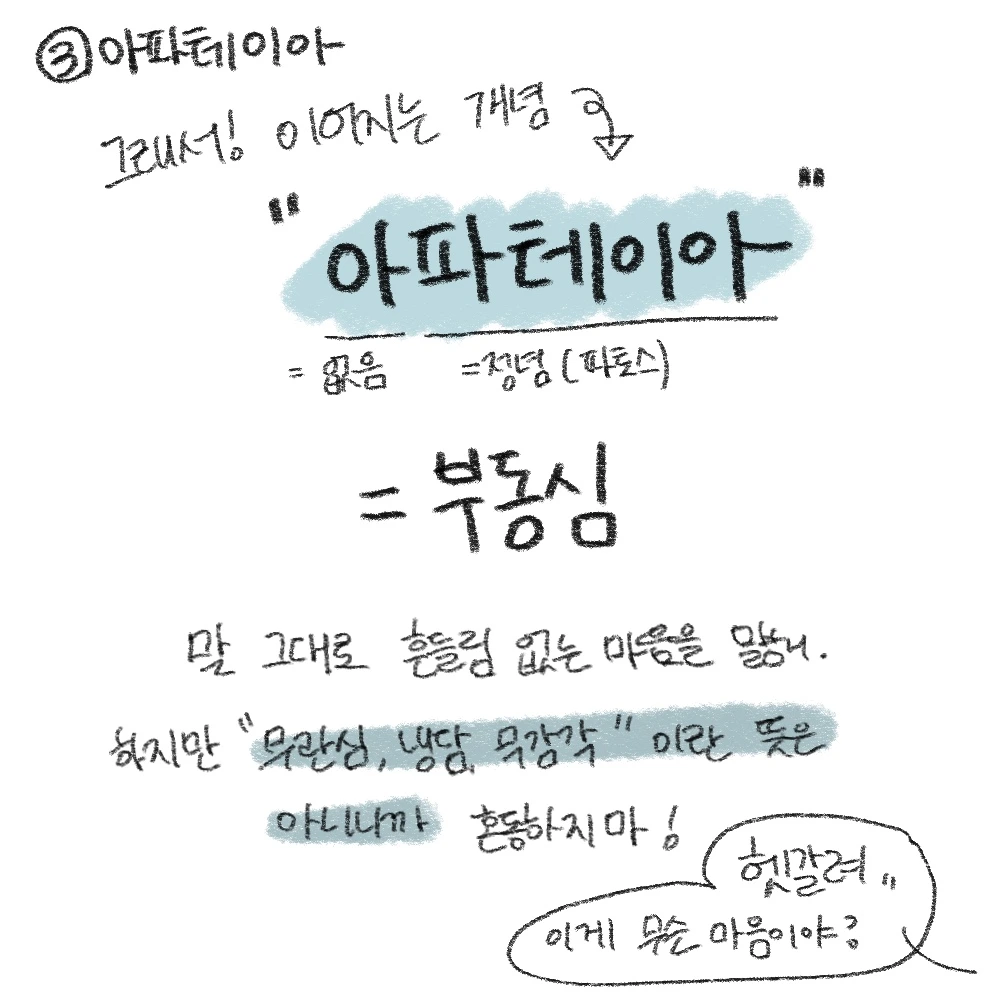 ③아파테이아
그래서! 이어지는 개념
"아파테이아"
= 없음 =정념 (파토스)
= 부동심
말 그대로 흔들림 없는 마음을 말해.
하지만 "무관심, 냉담, 무감각" 이란 뜻은
아니니까 혼동하지마!
헷갈려..
이게 무슨 마음이야?